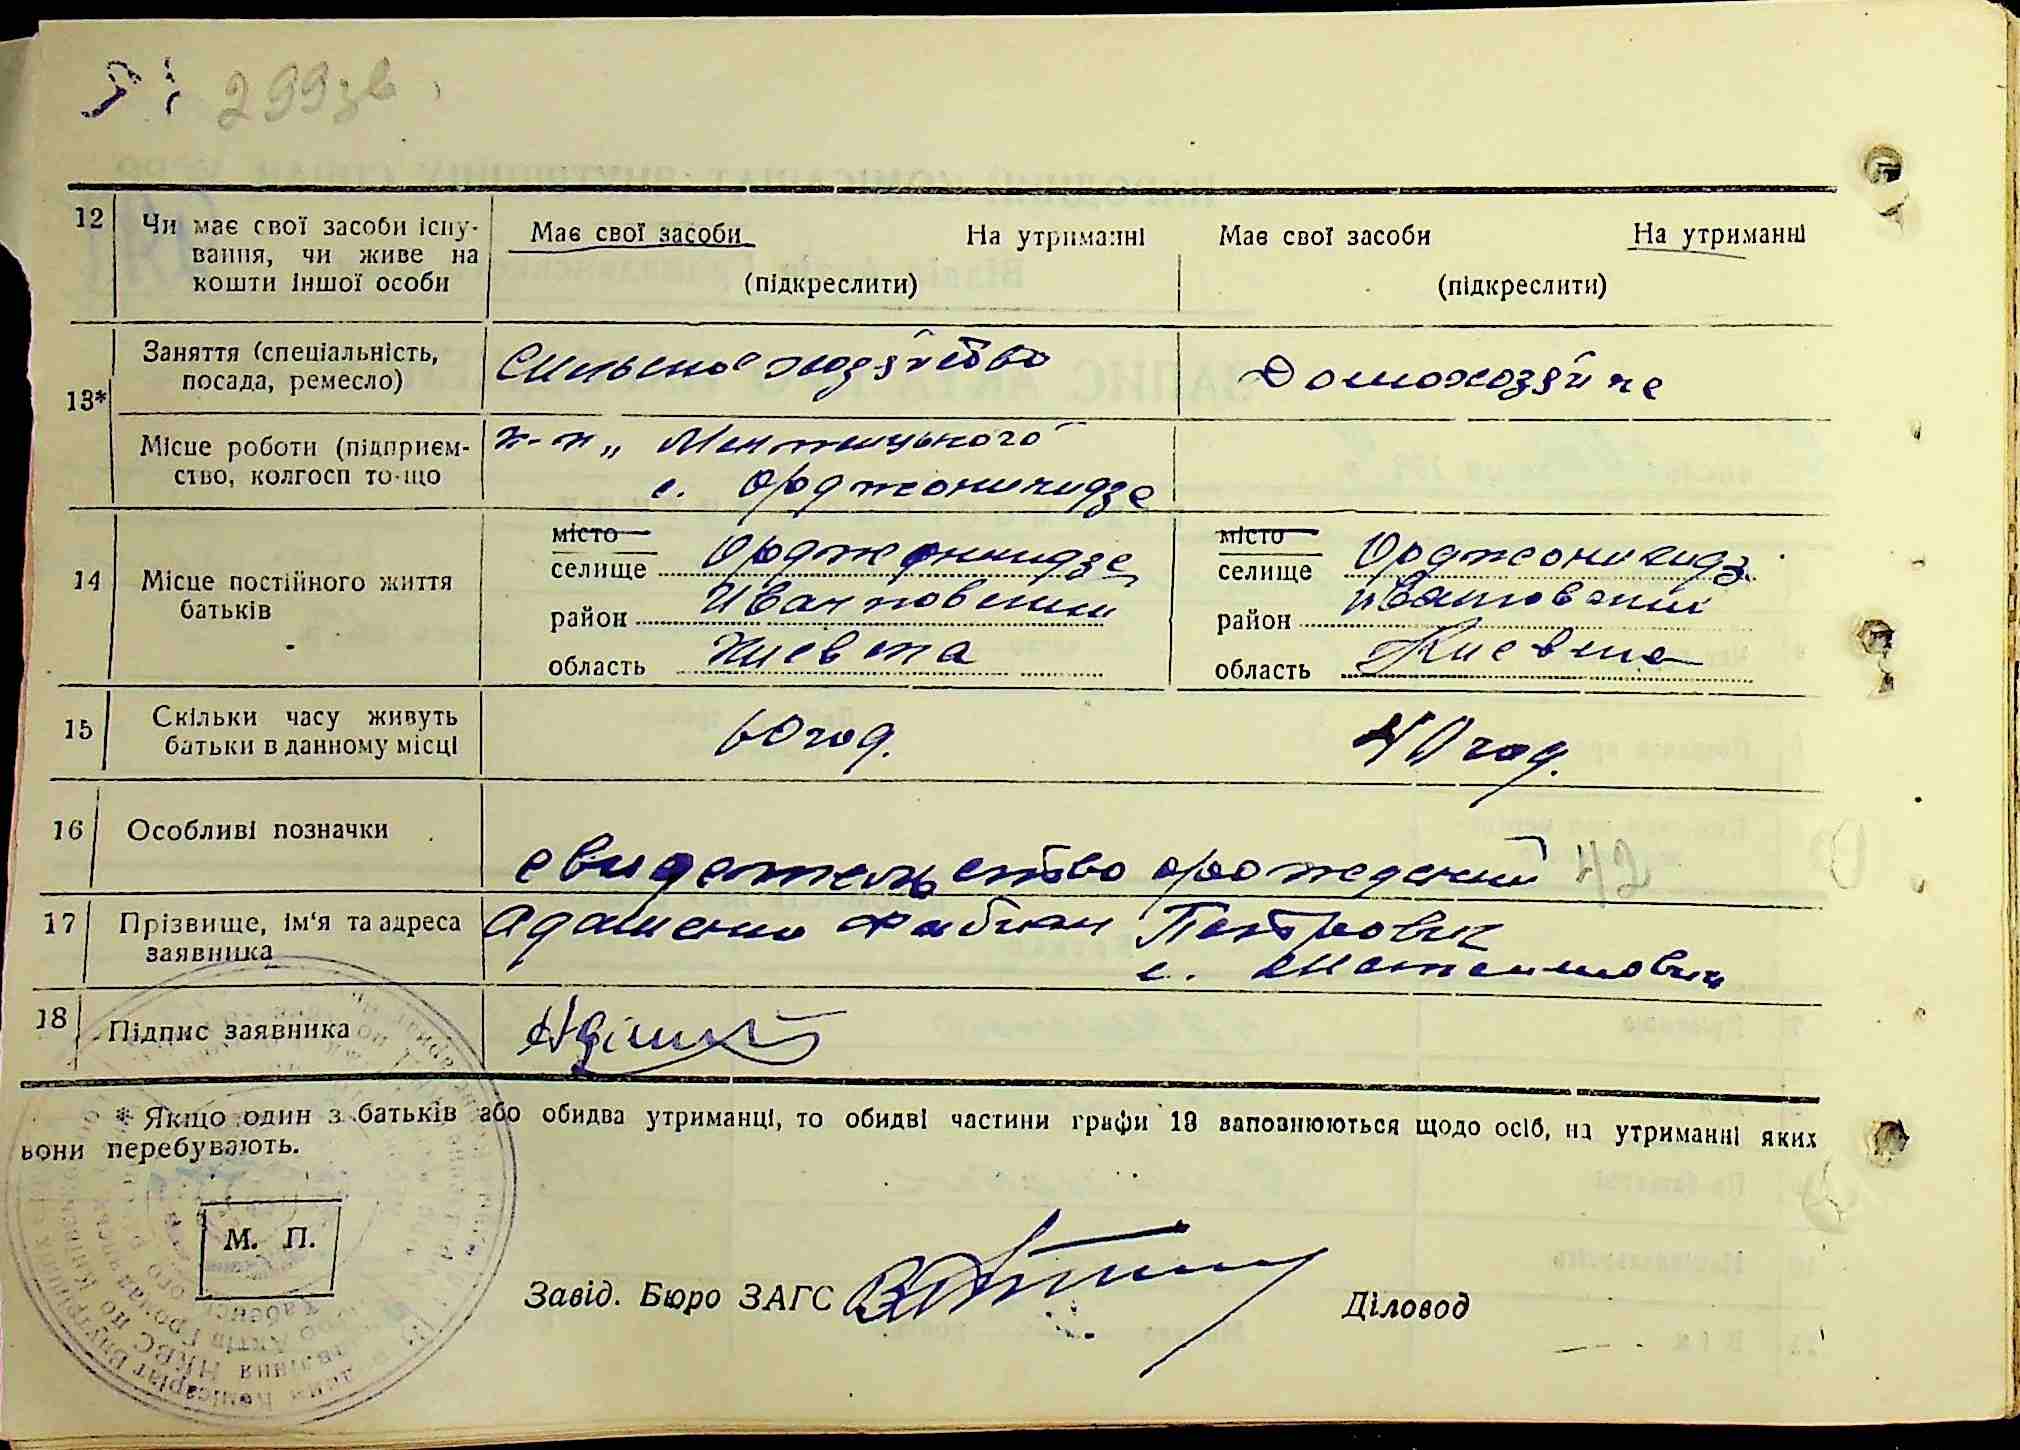 299зв
12 Чи має свої засоби існу-
вання, чи живе на
кошти іншої особи
Має свої засоби На утриманні
(підкреслити)
Має свої засоби На утриманні
(підкреслити)
13* Заняття (спеціальність,
посада, ремесло)
Сильское хозяйство
Домохозяйка
Місце роботи (підприєм-
ство, колгосп то-що
с. Орджоникидзе
14 Місце постійного життя
батьків
місто
селище Орджоникидзе
район Иванковский
область Киевска
місто
селище Орджоникидз
район Иванковский
область Киевска
15 Скільки часу живуть
батьки в данному місці
60 год.
40 год.
16 Особливі позначки
свидетельство орождений 42
17 Прізвище, ім'я та адреса
заявника
Адаменко Фабиан Петрович
с.
18 Підпис заявника
* Якщо один з батьків або обидва утриманці, то обидві частини графи 13 заповнюються щодо осіб, на утриманні яких
вони перебувають.
М. П.
Завід. Бюро ЗАГС
Діловод